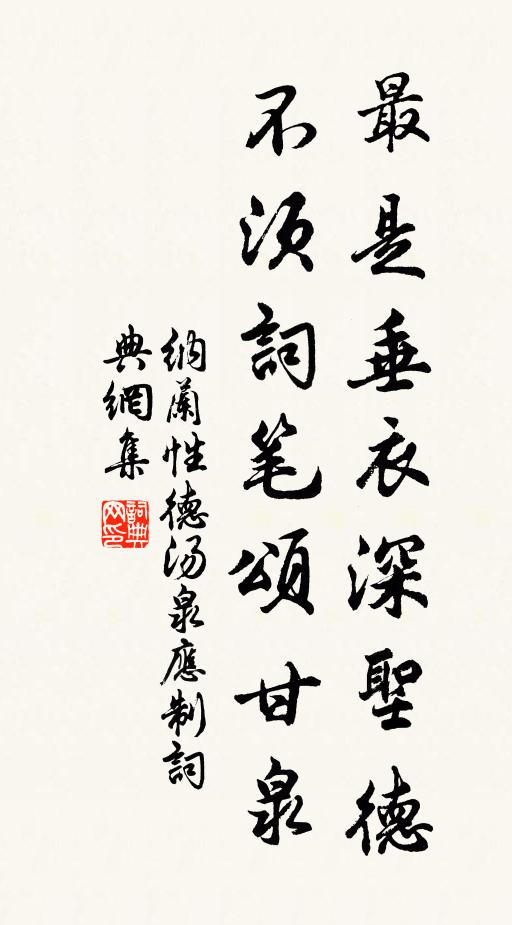 最是垂衣深聖德
不须詞笔頌甘泉
纳蘭性德汤泉應制詞
典網集
詞典
网印